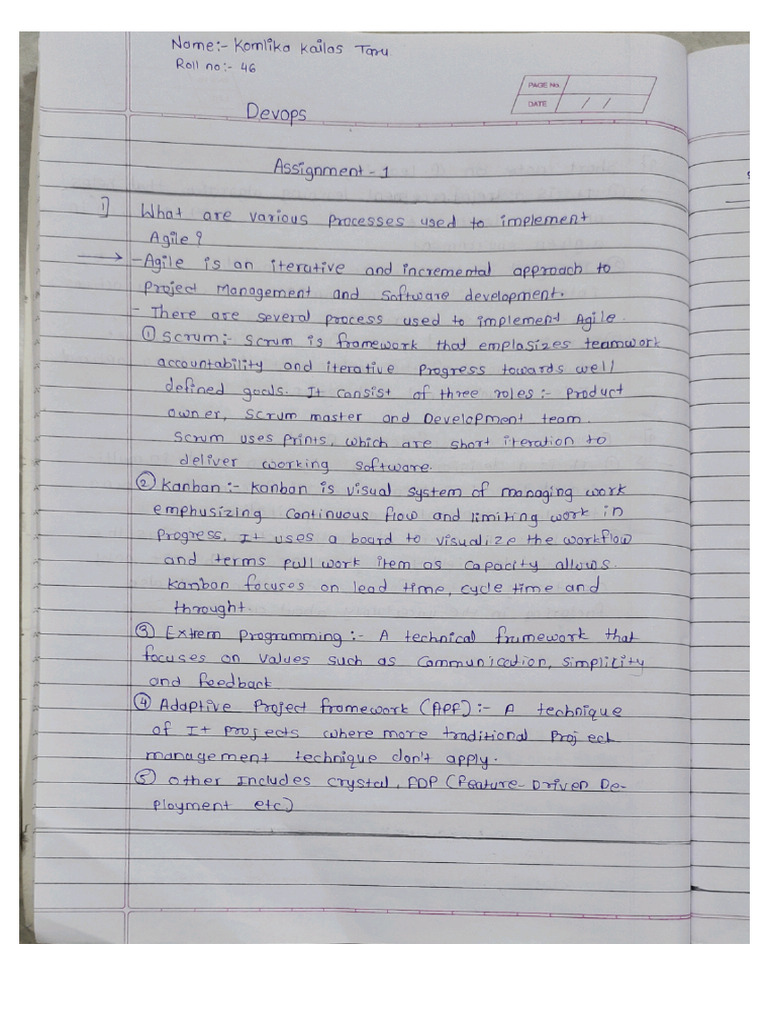 Name:- Komlika Kailas Taru
Roll no:- 46
PAGE No.
DATE / /
Devops
Assignment - 1
1] What are various processes used to implement
Agile?
→ - Agile is an iterative and incremental approach to
project Management and software development.
- There are several process used to implement Agile.
① Scrum:- Scrum is framework that emplasizes teamwork
accountability and iterative progress towards well
defined goals. It consist of three roles:- product
owner, scrum master and Development team.
Scrum uses prints, which are short iteration to
deliver working software.
② Kanban:- Kanban is visual system of managing work
emphusizing continuous flow and limiting work in
progress. It uses a board to visualize the workflow
and terms pull work item as capacity allows.
Kanban focuses on lead time, cycle time and
throught.
③ Extrem programming:- A technical framework that
focuses on values such as communication, simplicity
and feedback
④ Adaptive Project framework (APF):- A technique
of It projects where more traditional Project
management technique don't apply.
⑤ Other Includes crystal, FDP (Feature-Driven De-
ployment etc)